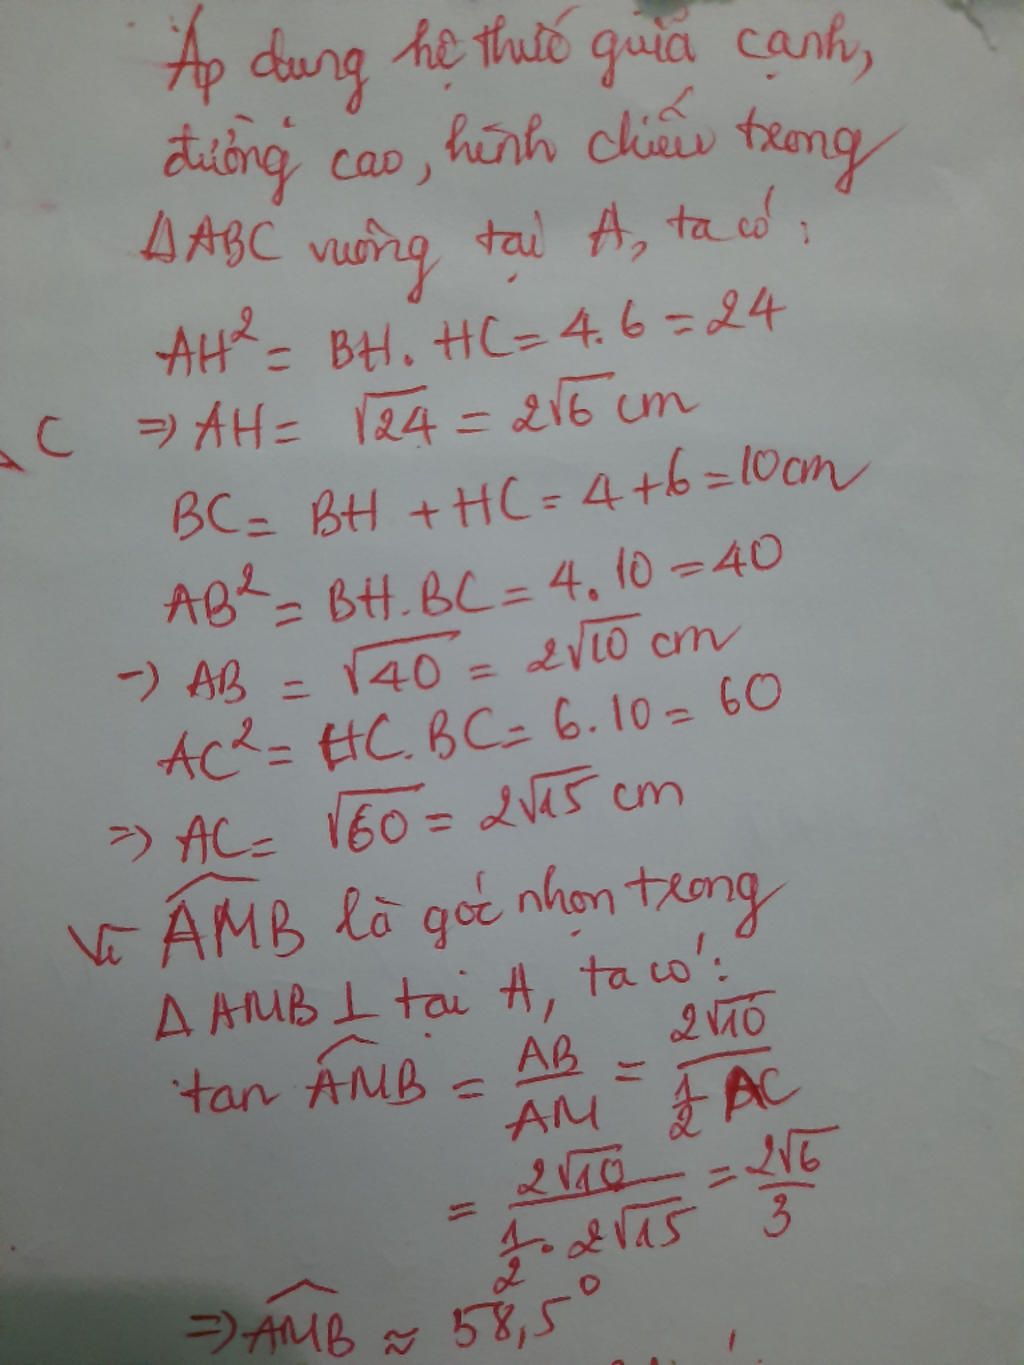 Áp dụng hệ thức giữa cạnh,
đường cao, hình chiếu trong
ΔABC vuông tại A, ta có:
AH² = BH. HC = 4. 6 = 24
C ⇒ AH = √24 = 2√6 cm
BC = BH + HC = 4 + 6 = 10cm
AB² = BH.BC = 4. 10 = 40
⇒ AB = √40 = 2√10 cm
AC² = HC.BC = 6. 10 = 60
⇒ AC = √60 = 2√15 cm
Vì \widehat{AMB} là góc nhọn trong
Δ AMB ⊥ tại A, ta có:
tan \widehat{AMB} = \frac{AB}{AM} = \frac{2√10}{\frac{1}{2} AC}
= \frac{2√10}{\frac{1}{2} . 2√15} = \frac{2√6}{3}
⇒ \widehat{AMB} ≈ 58,5°